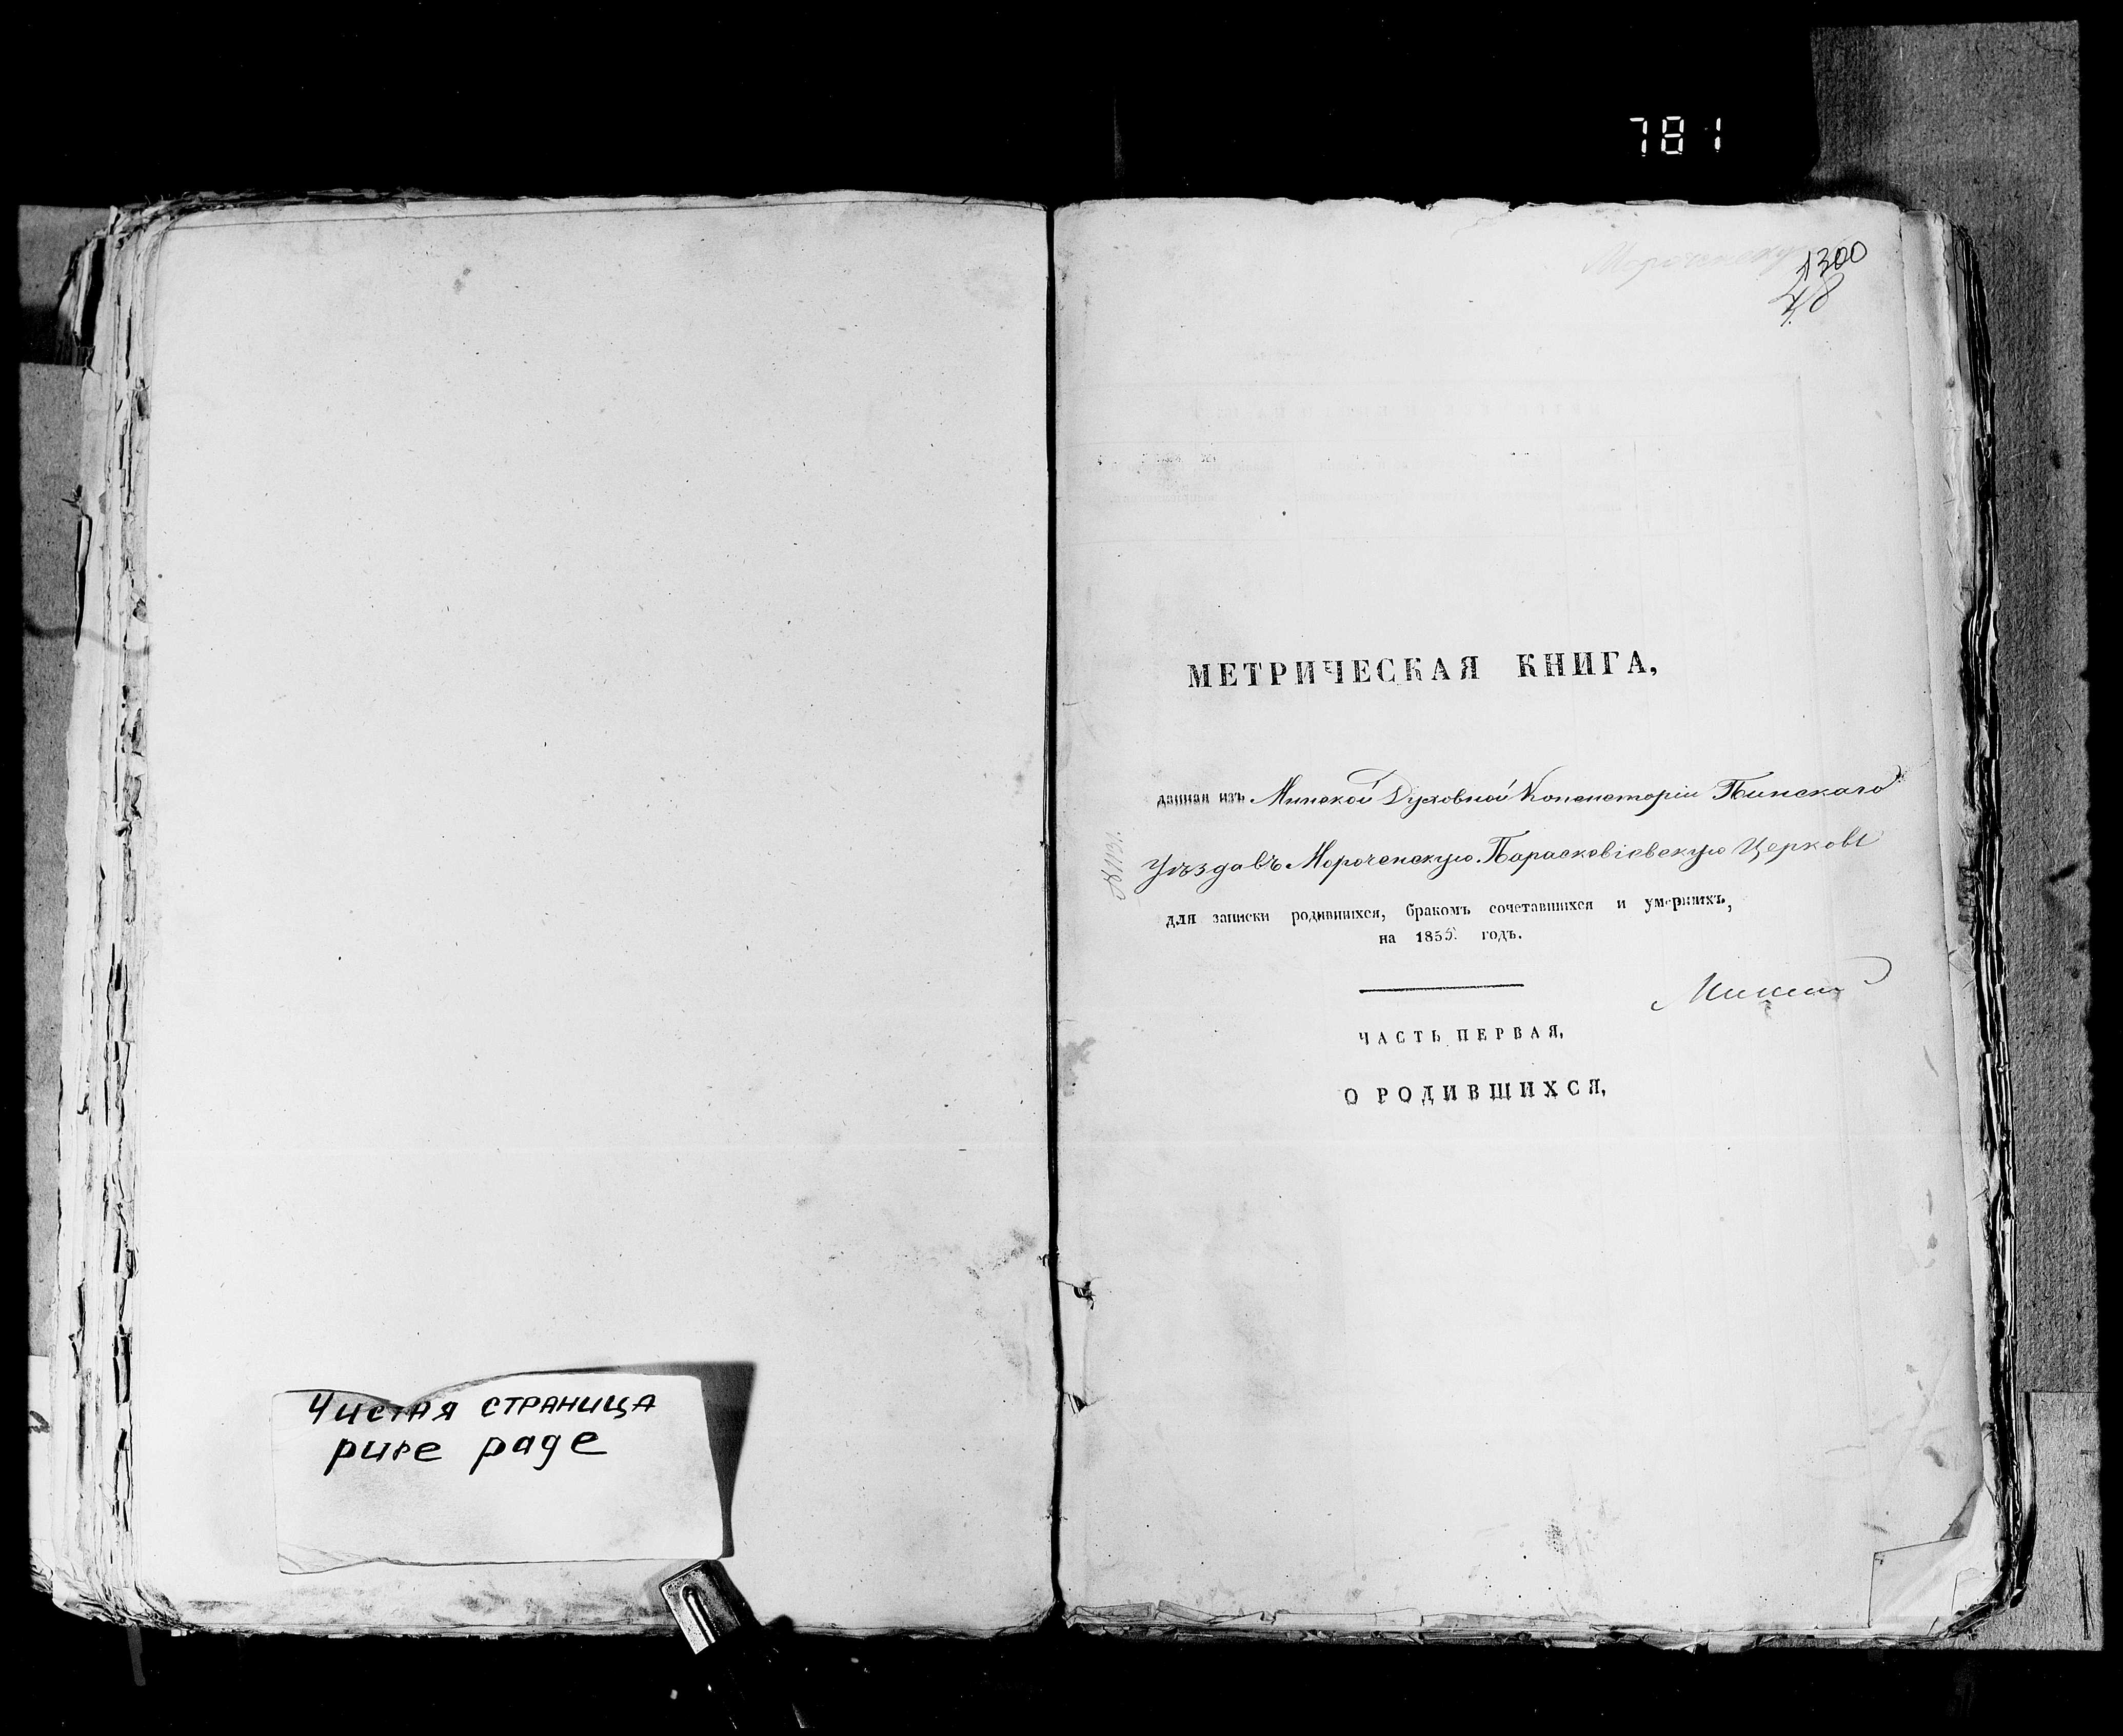 781
1300
48
МЕТРИЧЕСКАЯ КНИГА,
данная изъ Минской Духовной Консисторіи Пинскаго
Уѣзда въ Мороченскую Параскевіевскую Церковь
для записки родившихся, бракомъ сочетавшихся и умершихъ,
на 1855. годъ.
ЧАСТЬ ПЕРВАЯ,
О РОДИВШИХСЯ,
Чистая страница
pure page